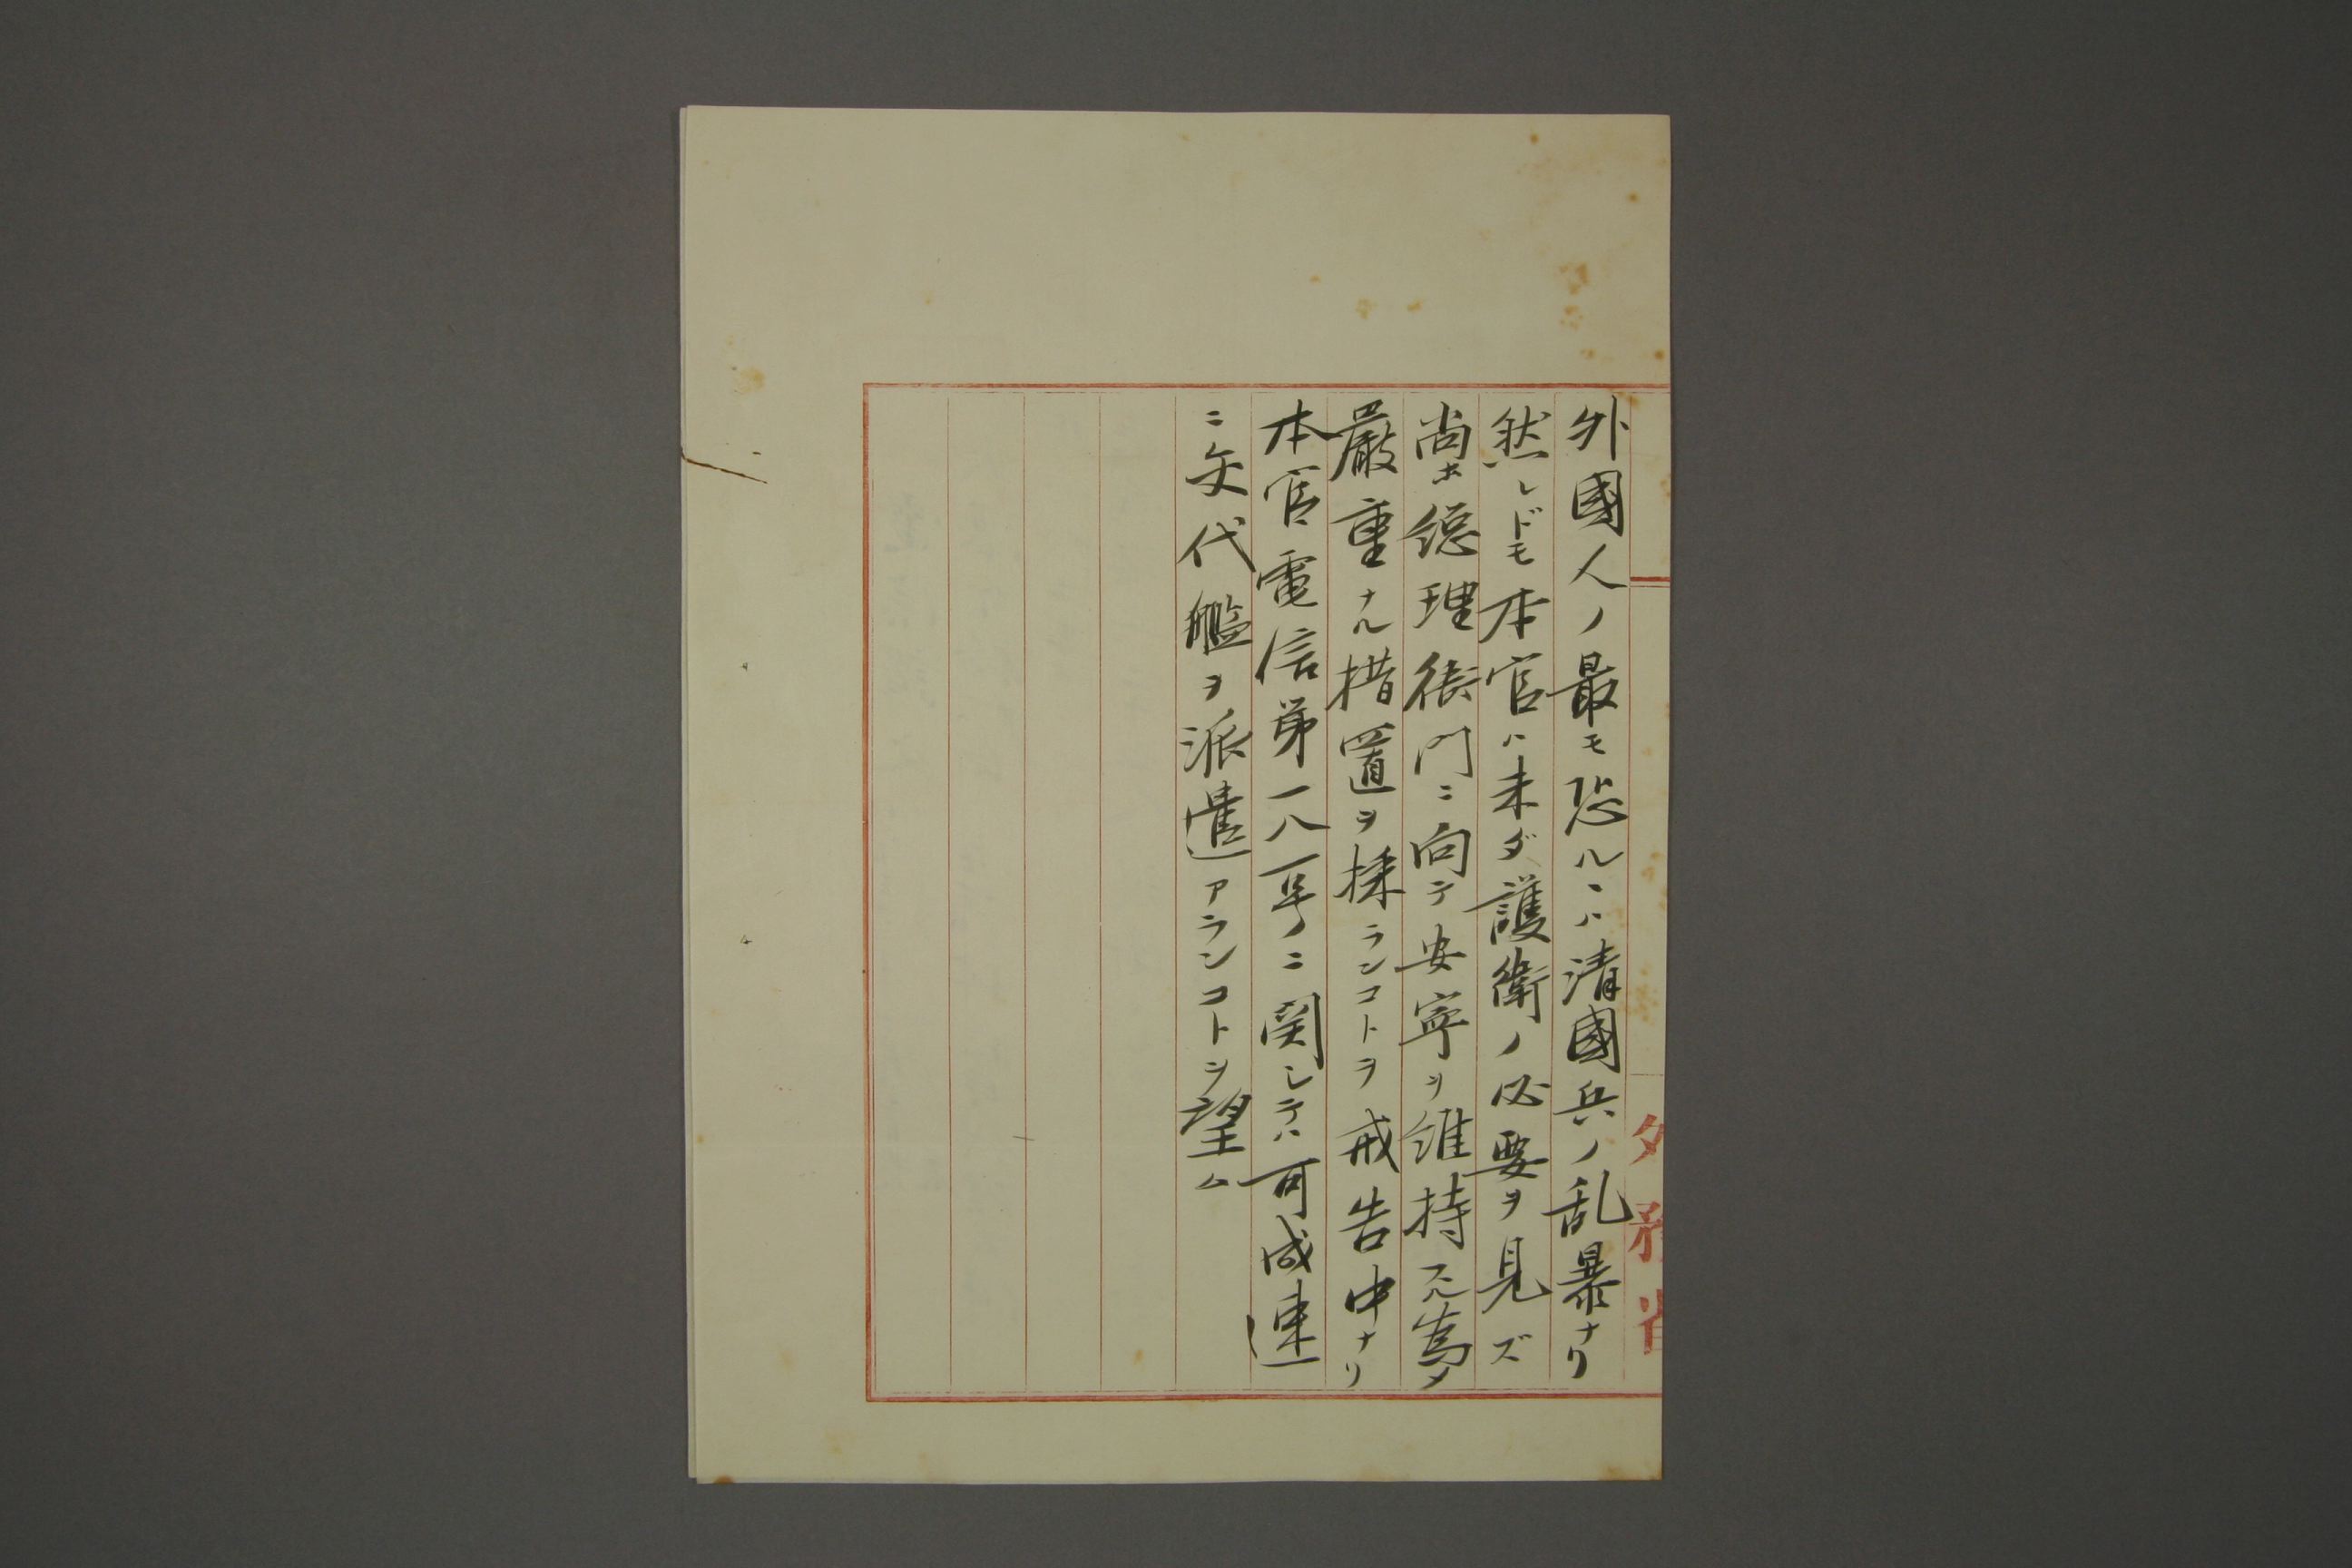 外國人ノ最モ恐ルヽハ清國兵ノ乱暴ナリ
然レドモ本官ハ未ダ護衛ノ必要ヲ見ズ
尚ホ総理衙門ニ向テ安寧ヲ維持スル為メ
嚴重ナル措置ヲ採ランコトヲ戒告中ナリ
本官電信第一八号ニ関シテハ可成速
ニ交代艦ヲ派遣アランコトヲ望ム
外務省